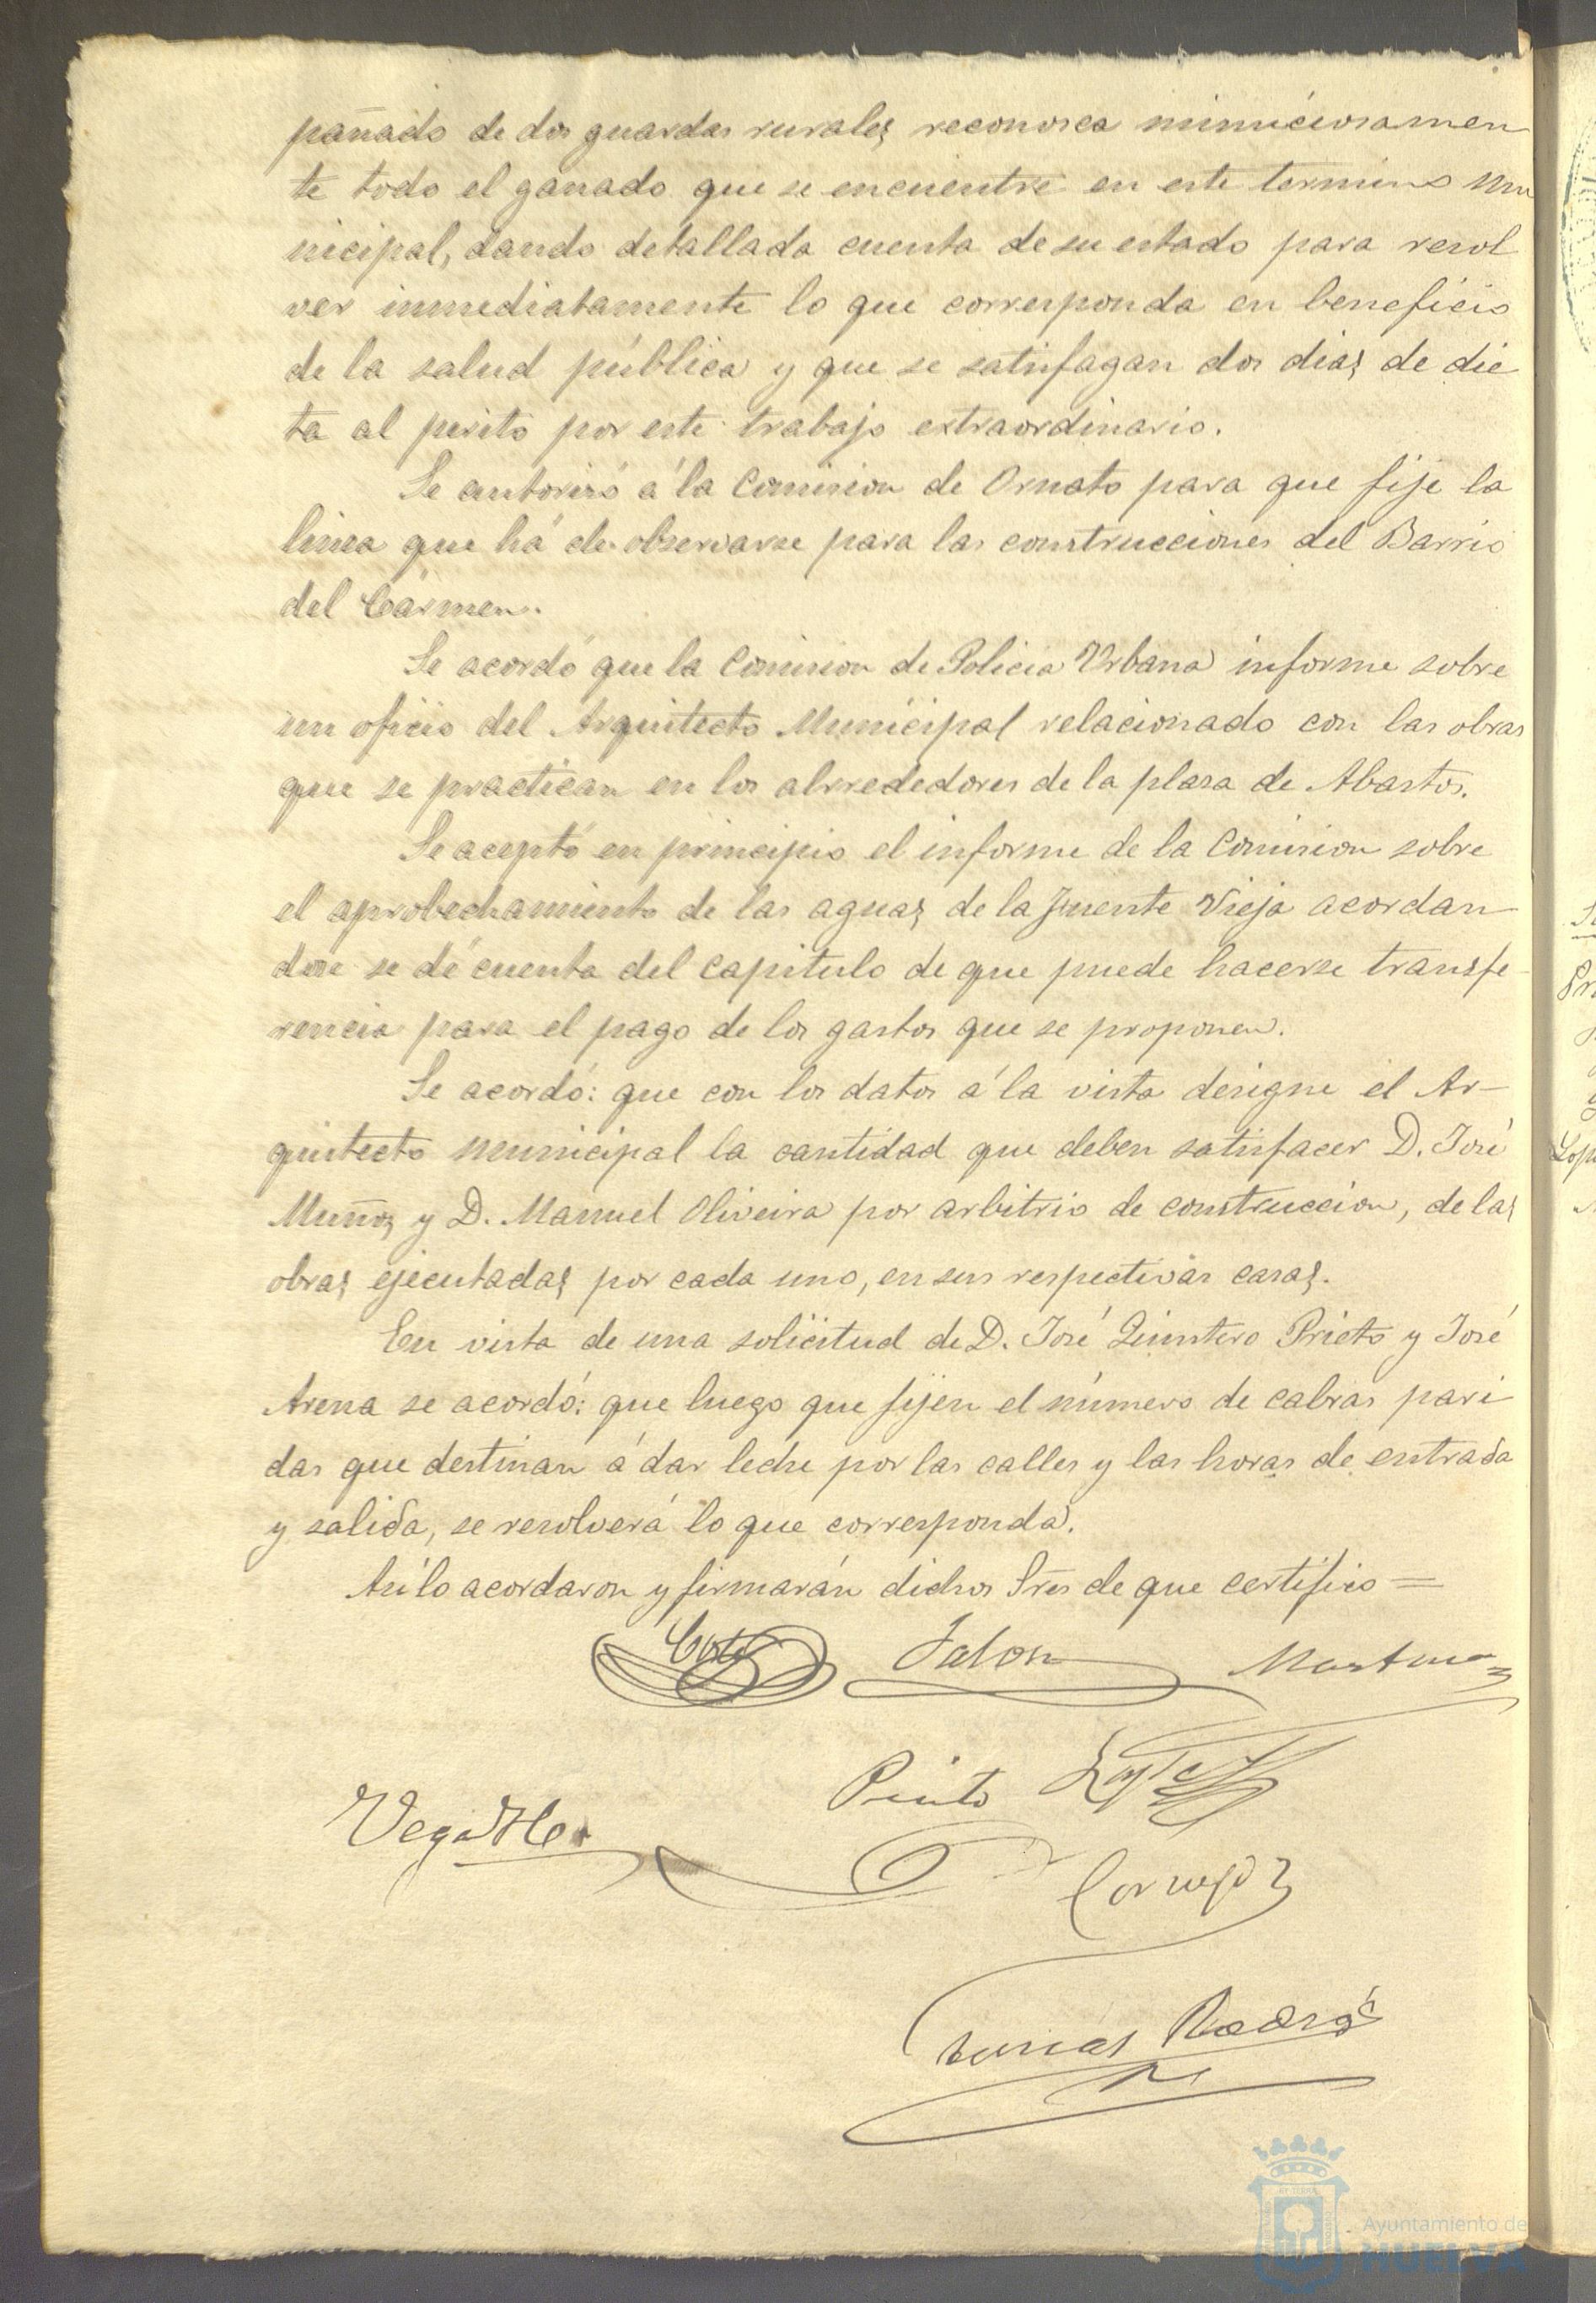 pañado de dos guardas rurales reconosca minuciosamen
te todo el ganado que se encuentre en este termino mu
nicipal, dando detallada cuenta de su estado para resol
ver inmediatamente lo que corresponda en beneficio
de la salud pública y que se satisfagan dos dias de die
ta al perito por este trabajo extraordinario.
Se autorisó á la Comision de Ornato para que fije la
linea que há de observarse para las construcciones del Barrio
del Cármen.
Se acordó que la Comision de Policia Urbana informe sobre
un oficio del Arquitecto Municipal relacionado con las obras
que se practican en los alrrededores de la plasa de Abastos.
Se aceptó en principio el informe de la Comision sobre
el aprobechamiento de las aguas de la Fuente Vieja acordan
dose se dé cuenta del capitulo de que puede hacerse transfe-
rencia para el pago de los gastos que se proponen.
Se acordó: que con los datos á la vista designe el Ar-
quitecto municipal la cantidad que deben satisfacer D. José
Muños y D. Manuel Oliveira por arbitrio de construccion, de las
obras ejecutadas por cada uno, en sus respectivas casas.
En vista de una solicitud de D. José Quintero Prieto y José
Arena se acordó: que luego que fijen el número de cabras pari
das que destinan á dar leche por las calles y las horas de entrada
y salida, se resolverá lo que corresponda.
Asi lo acordaron y firmarán dichos Sres de que certifico =
Coto Jalon Martinez
Pinto Lopez
Vega
Cornejo
Tomás
Ayuntamiento de
HUELVA
Pr
Lop